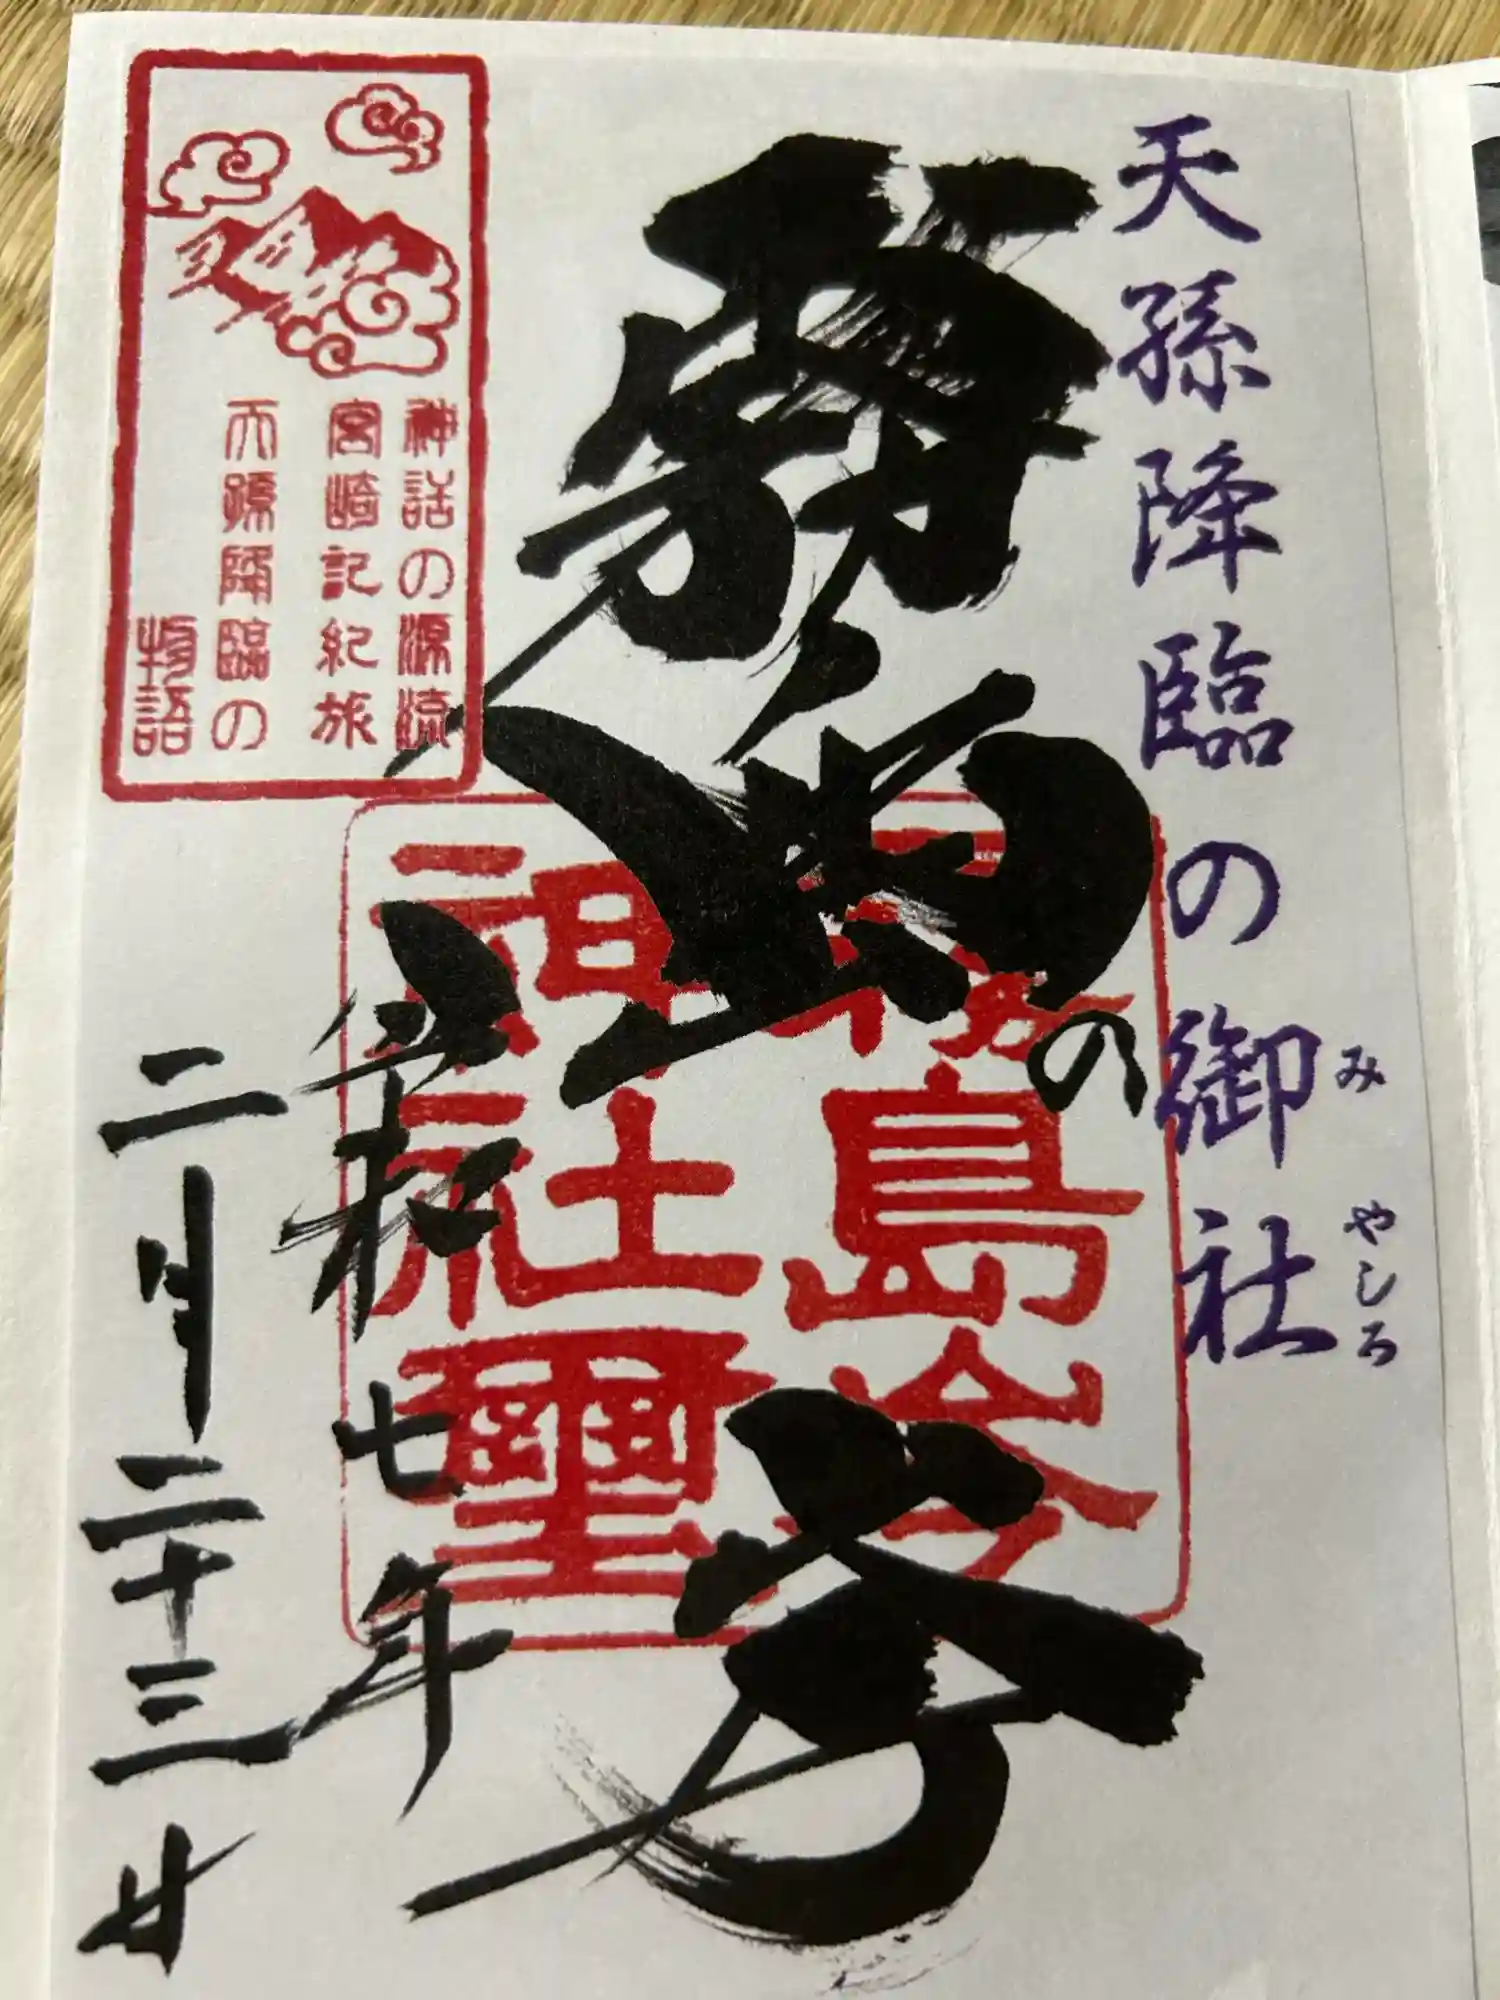 天孫降臨の御社
みやしろ
霧島岑
神社璽
令和七年
二月二十三日
神話の源流
宮崎記紀旅
天孫降臨の
物語